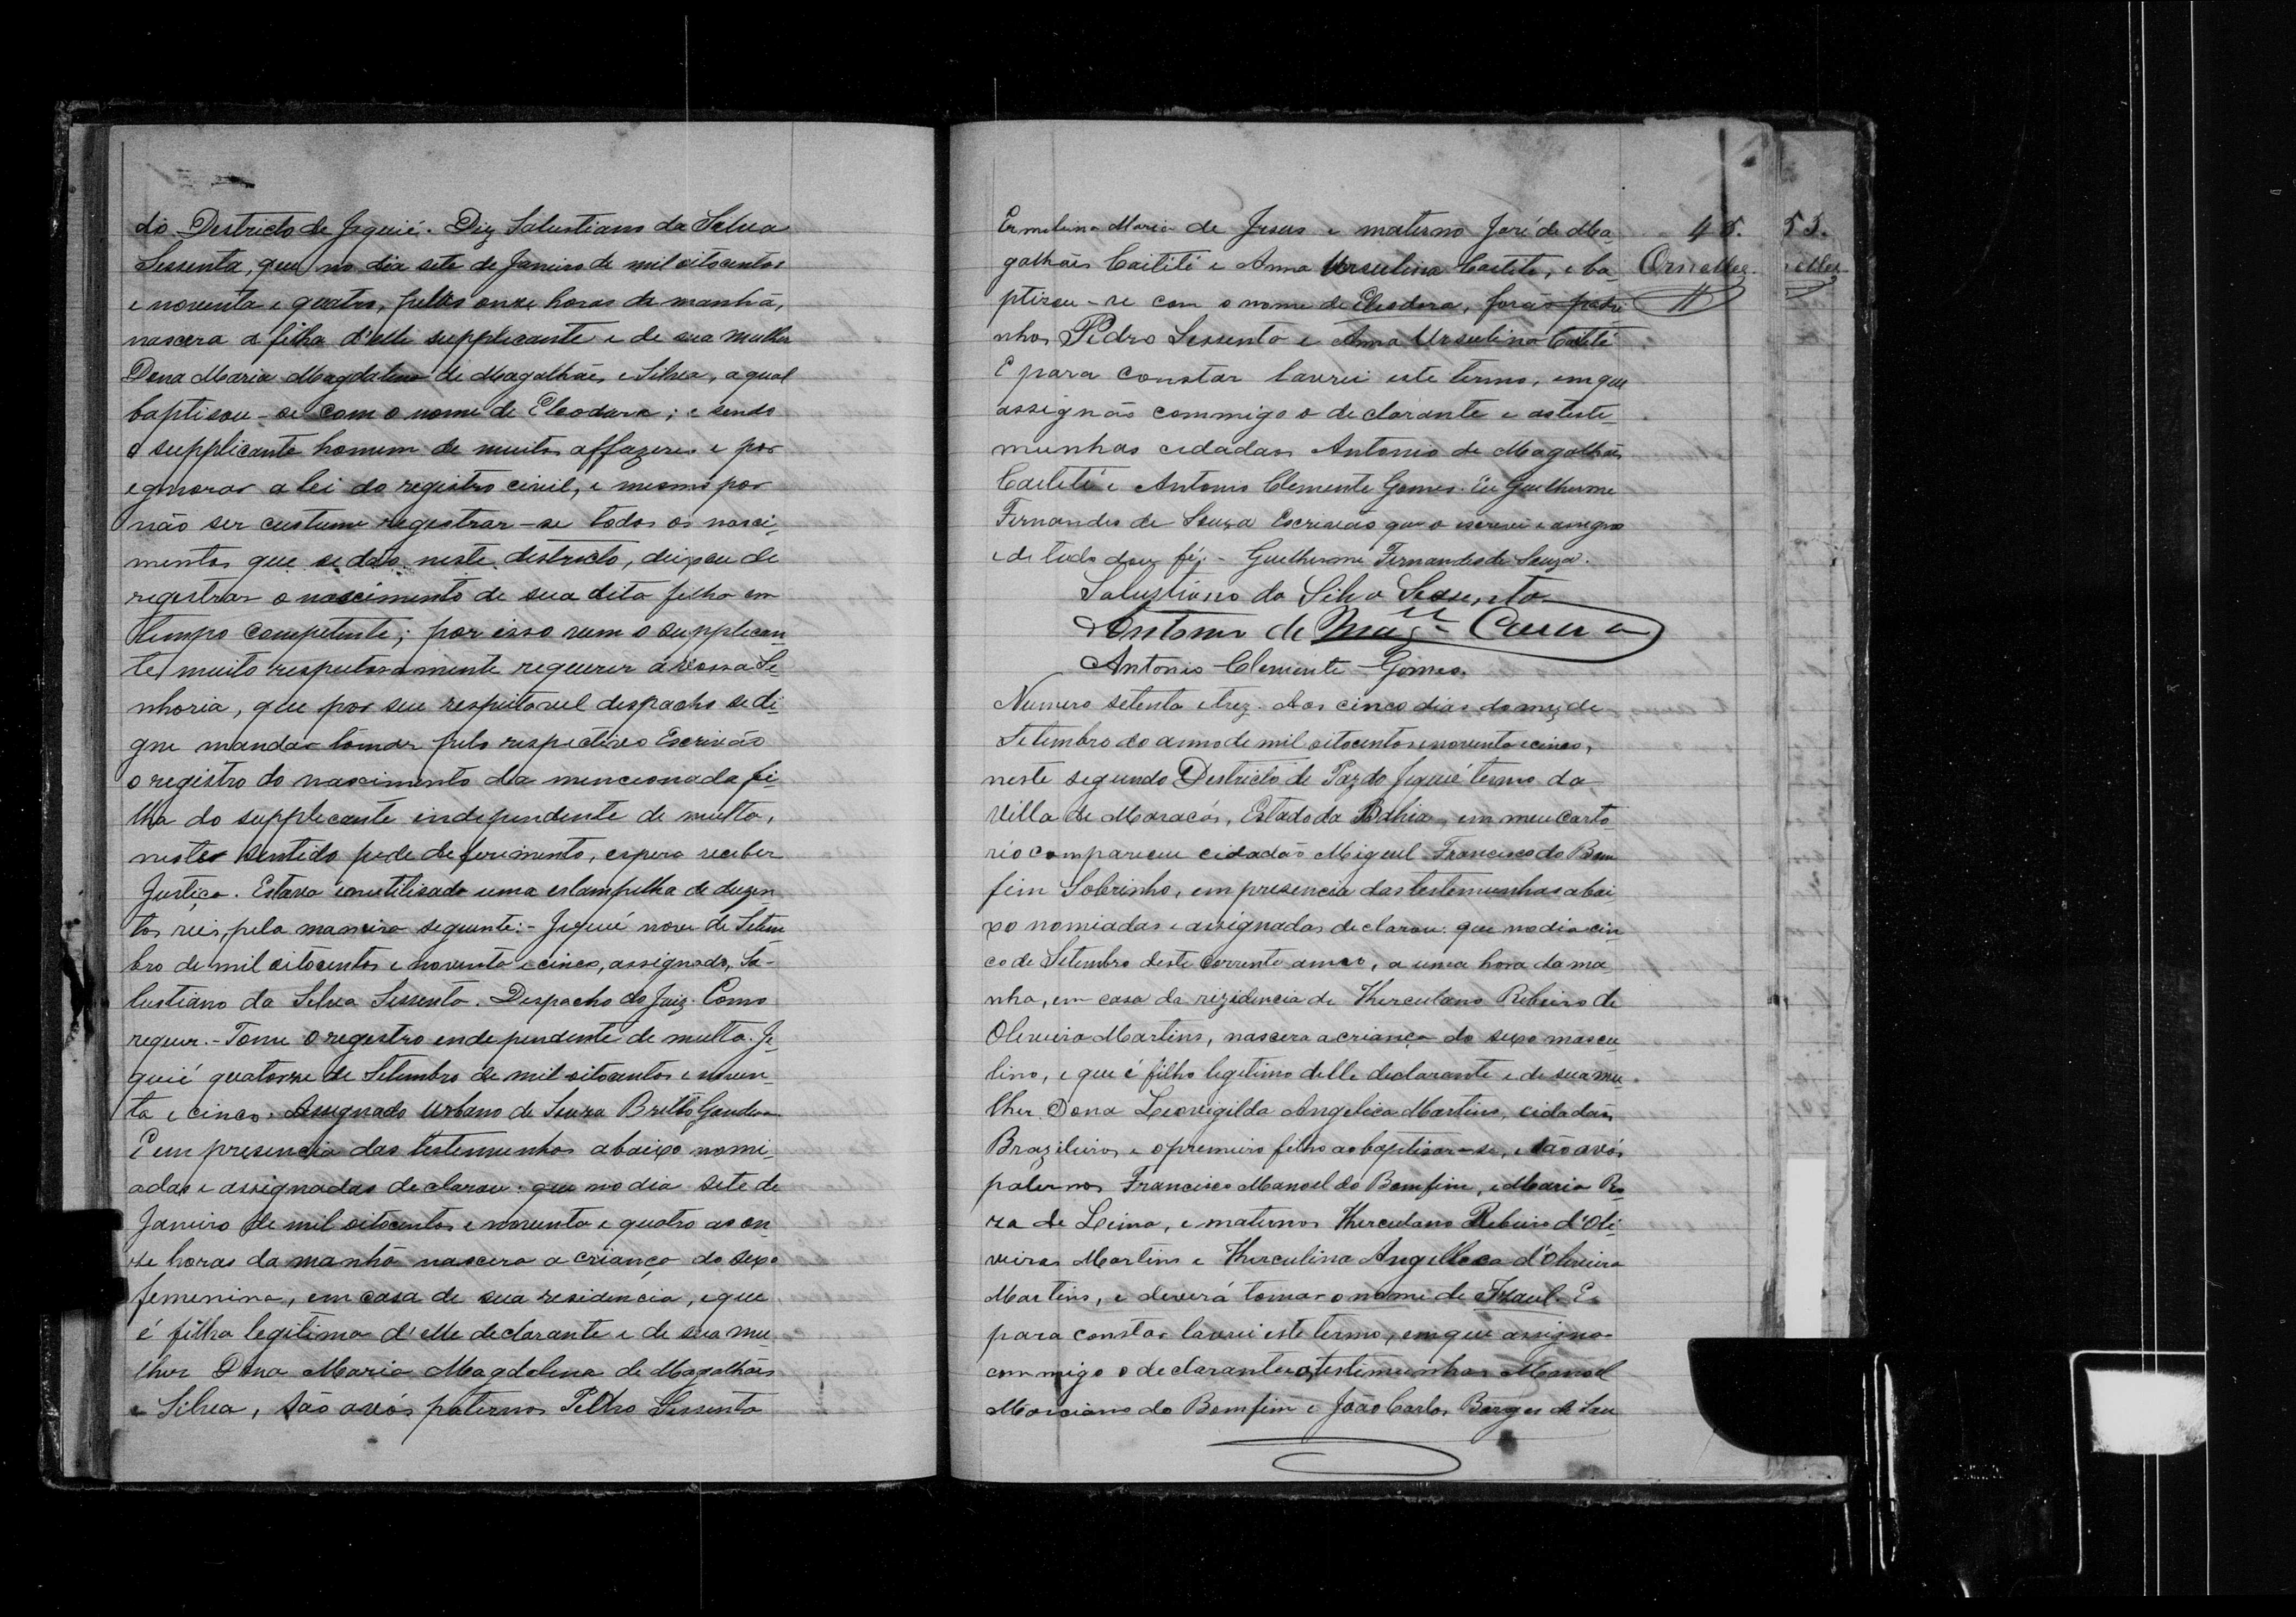 do Destricto de Jequié. Diz Salustiano da Selva
Sessenta, que no dia sete de Janeiro de mil oitocentos
e noventa e quatro, pellas onze horas da manhã,
nascera a filha d'elle supplicante e de sua mulher
Dona Maria Magdalena de Magalhães e Silva, a qual
baptisou-se com o nome de Eleodora; e sendo
o supplicante homem de muitos affazeres e por
egnorar a lei do registro civil, e mesmo por
não ser custume registrar-se todos os nasci-
mentos que se dão neste destricto, deixou de
registrar o nascimento de sua dita filha em
tempo competente; por isso vem o supplican
te muito respeitosamente requerer a vossa Se-
nhoria, que por seu respeitavel despacho se di-
gne mandar tomar pelo respectivo Escrivão
o registro do nascimento da mencionada fi-
lha do supplicante independente de multa,
neste sentido pede deferimento, espera receber
Justiça. Estava inutilisada uma estampilha de duzen
tos réis, pela maneira seguente:- Jequié nove de Setem
bro de mil oitocentos e noventa e cinco, assignado, Sa-
lustiano da Silva Sessenta. Despacho do Juiz. Como
requer.- Tome o registro endependente de multa. Je-
quié quatorze de Setembro de mil oitocentos e noven-
ta e cinco. Assignado Urbano de Souza Britto Gondim
E em presencia das testemunhas abaixo nomi-
adas e assignadas declarou: que no dia sete de
Janeiro de mil oitocentos e noventa e quatro as on-
ze horas da manhã nascera a criança do sexo
femenino, em casa de sua residencia, e que
é filha legitima d'elle declarante e de sua mu-
lher Dona Maria Magdalena de Magalhães
e Silva, são avós paternos Pedro Sessenta
Ermelina Maria de Jesus e materno José de Ma-
galhães Caitité e Anna Ursulina Caitité, e ba-
ptisou-se com o nome de Eleodora, forão padri
nhos Pedro Sessenta e Anna Ursulina Caitité
E para constar lavrei este termo, em que
assignão commigo o declarante e as teste-
munhas cidadãos Antonio de Magalhães
Caitité e Antonio Clemente Gomes. Eu Guilherme
Fernandes de Souza Escrivão que o escrevi e assigno
e de tudo dou fé;- Guilherme Fernandes de Souza.
Salustiano da Silva Sessenta
Antonio de Mag.
Antonio Clemente Gomes.
Numero setenta e trez. Aos cinco dias do mez de
Setembro do anno de mil oitocentos e noventa e cinco,
neste segundo Destricto de Paz do Jequié termo da
Villa de Maracás, Estado da Bahia, em meu Carto
rio compareceu cidadão Miguel Francisco do Bom
fim Sobrinho, em presencia das testemunhas abai
xo nomiadas e assignadas declarou: que no dia cin
co de Setembro deste corrente anno, a uma hora da ma
nha, em casa da rezidencia de Herculano Ribeiro de
Oliveira Martins, nascera a criança do sexo mascu
lino, e que é filho legitimo delle declarante e de sua mu-
lher Dona Leovigilda Angelica Martins, cidadãos
Brazileiros e o premeiro filho ao baptisar-se, e são avós
paternos Francisco Manoel do Bomfim, e Maria Ro
za de Leima, e maternos Herculano Ribeiro d'Oli-
veiras Martins e Herculina Angellica d'Oliveira
Martins, e deverá tomar o nome de Izael. E
para constar lavrei este termo, em que assigna
commigo o declarante e as testimunhas Manoel
Marciano do Bomfim e João Carlos Borges de Sou
48.
Ornellas
55.